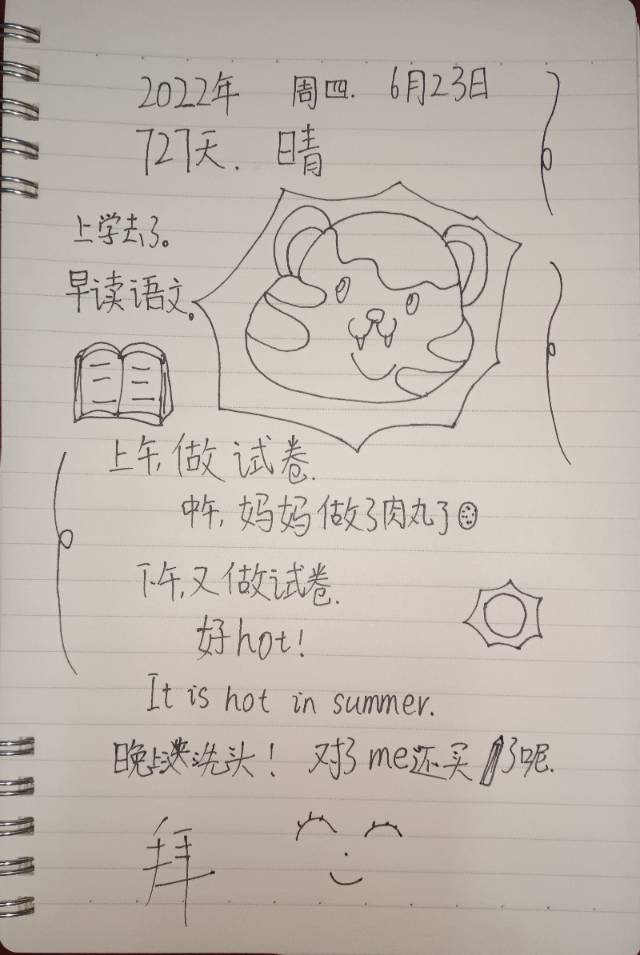 2022年 周四. 6月23日
727天. 晴
上学去了。
早读语文。
上午,做试卷.
中午,妈妈做了肉丸了
下午,又做试卷.
好hot!
It is hot in summer.
晚上洗头! 对了me还买了呢.
拜